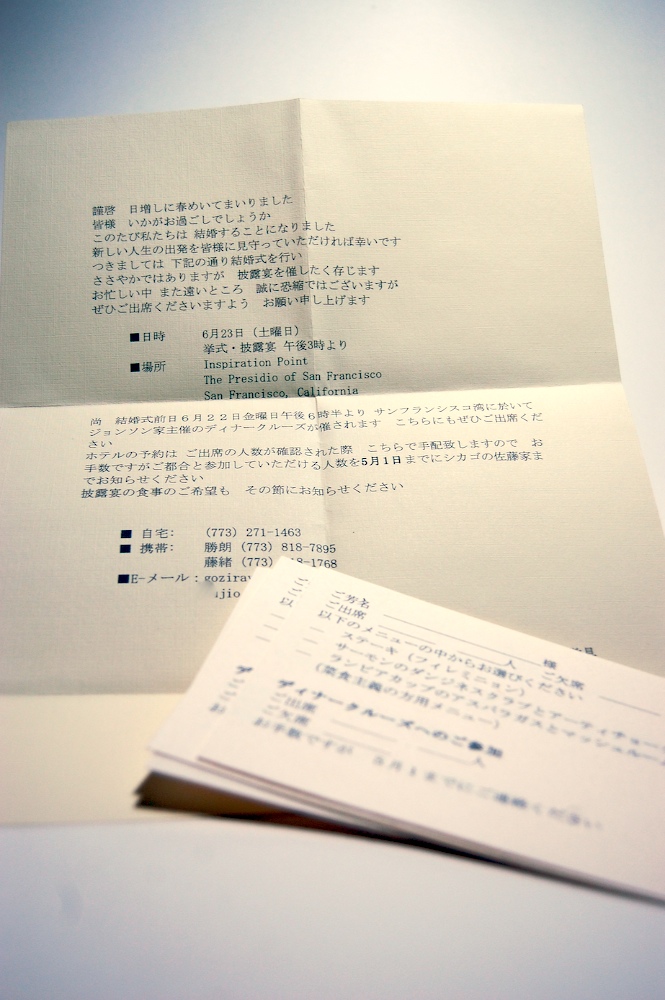 謹啓　日増しに春めいてまいりました
皆様　いかがお過ごしでしょうか
このたび私たちは 結婚することになりました
新しい人生の出発を皆様に見守っていただければ幸いです
つきましては 下記の通り結婚式を行い
ささやかではありますが　披露宴を催したく存じます
お忙しい中 また遠いところ　誠に恐縮ではございますが
ぜひご出席くださいますよう　お願い申し上げます
■日時　6月23日（土曜日）
挙式・披露宴 午後3時より
■場所　Inspiration Point
The Presidio of San Francisco
San Francisco, California
尚　結婚式前日６月２２日金曜日午後６時半より サンフランシスコ湾に於いて
ジョンソン家主催のディナークルーズが催されます　こちらにもぜひご出席くだ
さい
ホテルの予約は ご出席の人数が確認された際　こちらで手配致しますので　お
手数ですがご都合と参加していただける人数を5月1日までにシカゴの佐藤家ま
でお知らせください
披露宴の食事のご希望も　その節にお知らせください
■ 自宅:　(773) 271-1463
■ 携帯:　勝朗 (773) 818-7895
藤緒 (773) 818-1768
■E-メール：gozira
ご芳名 ＿＿＿ 様
ご出席 ＿＿＿ 人　ご欠席 ＿＿＿
以下のメニューの中からお選びください
ステーキ（フィレミニョン）
サーモンのダンジネスクラブとアーティチョー
ランピアカップのアスパラガスとマッシュルーム
（菜食主義の方用メニュー）
ディナークルーズへのご参加
ご出席 ＿＿＿ 人
ご欠席 ＿＿＿
お手数ですが　５月１までにご連絡ください